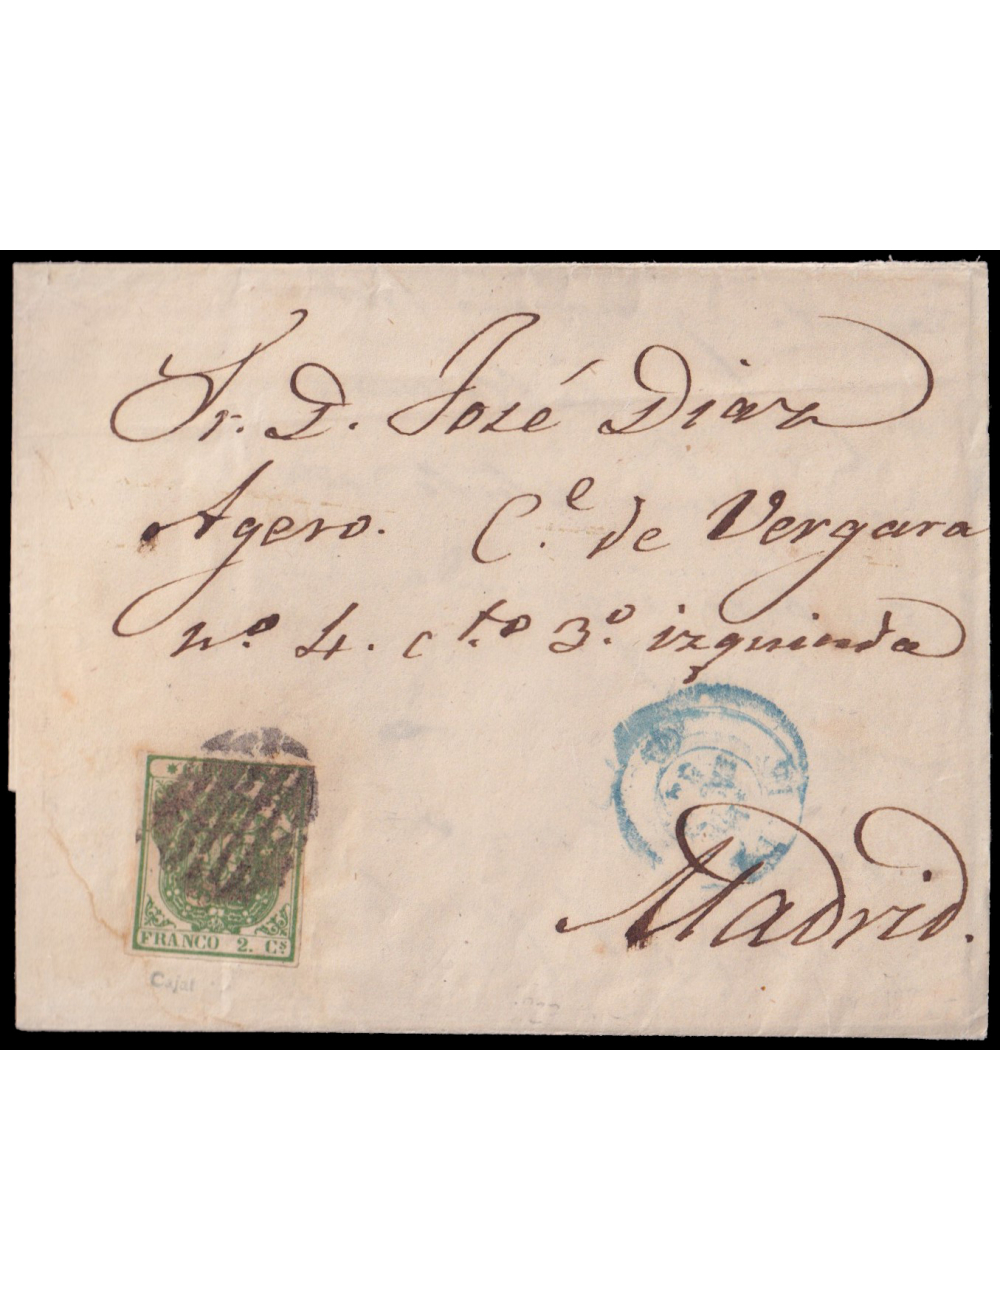 Sr. D. José Diaz
Agero. C.e de Vergara
nº. 4. cto. 3º. izquierda
Madrid.
FRANCO 2. Cs
Cajal